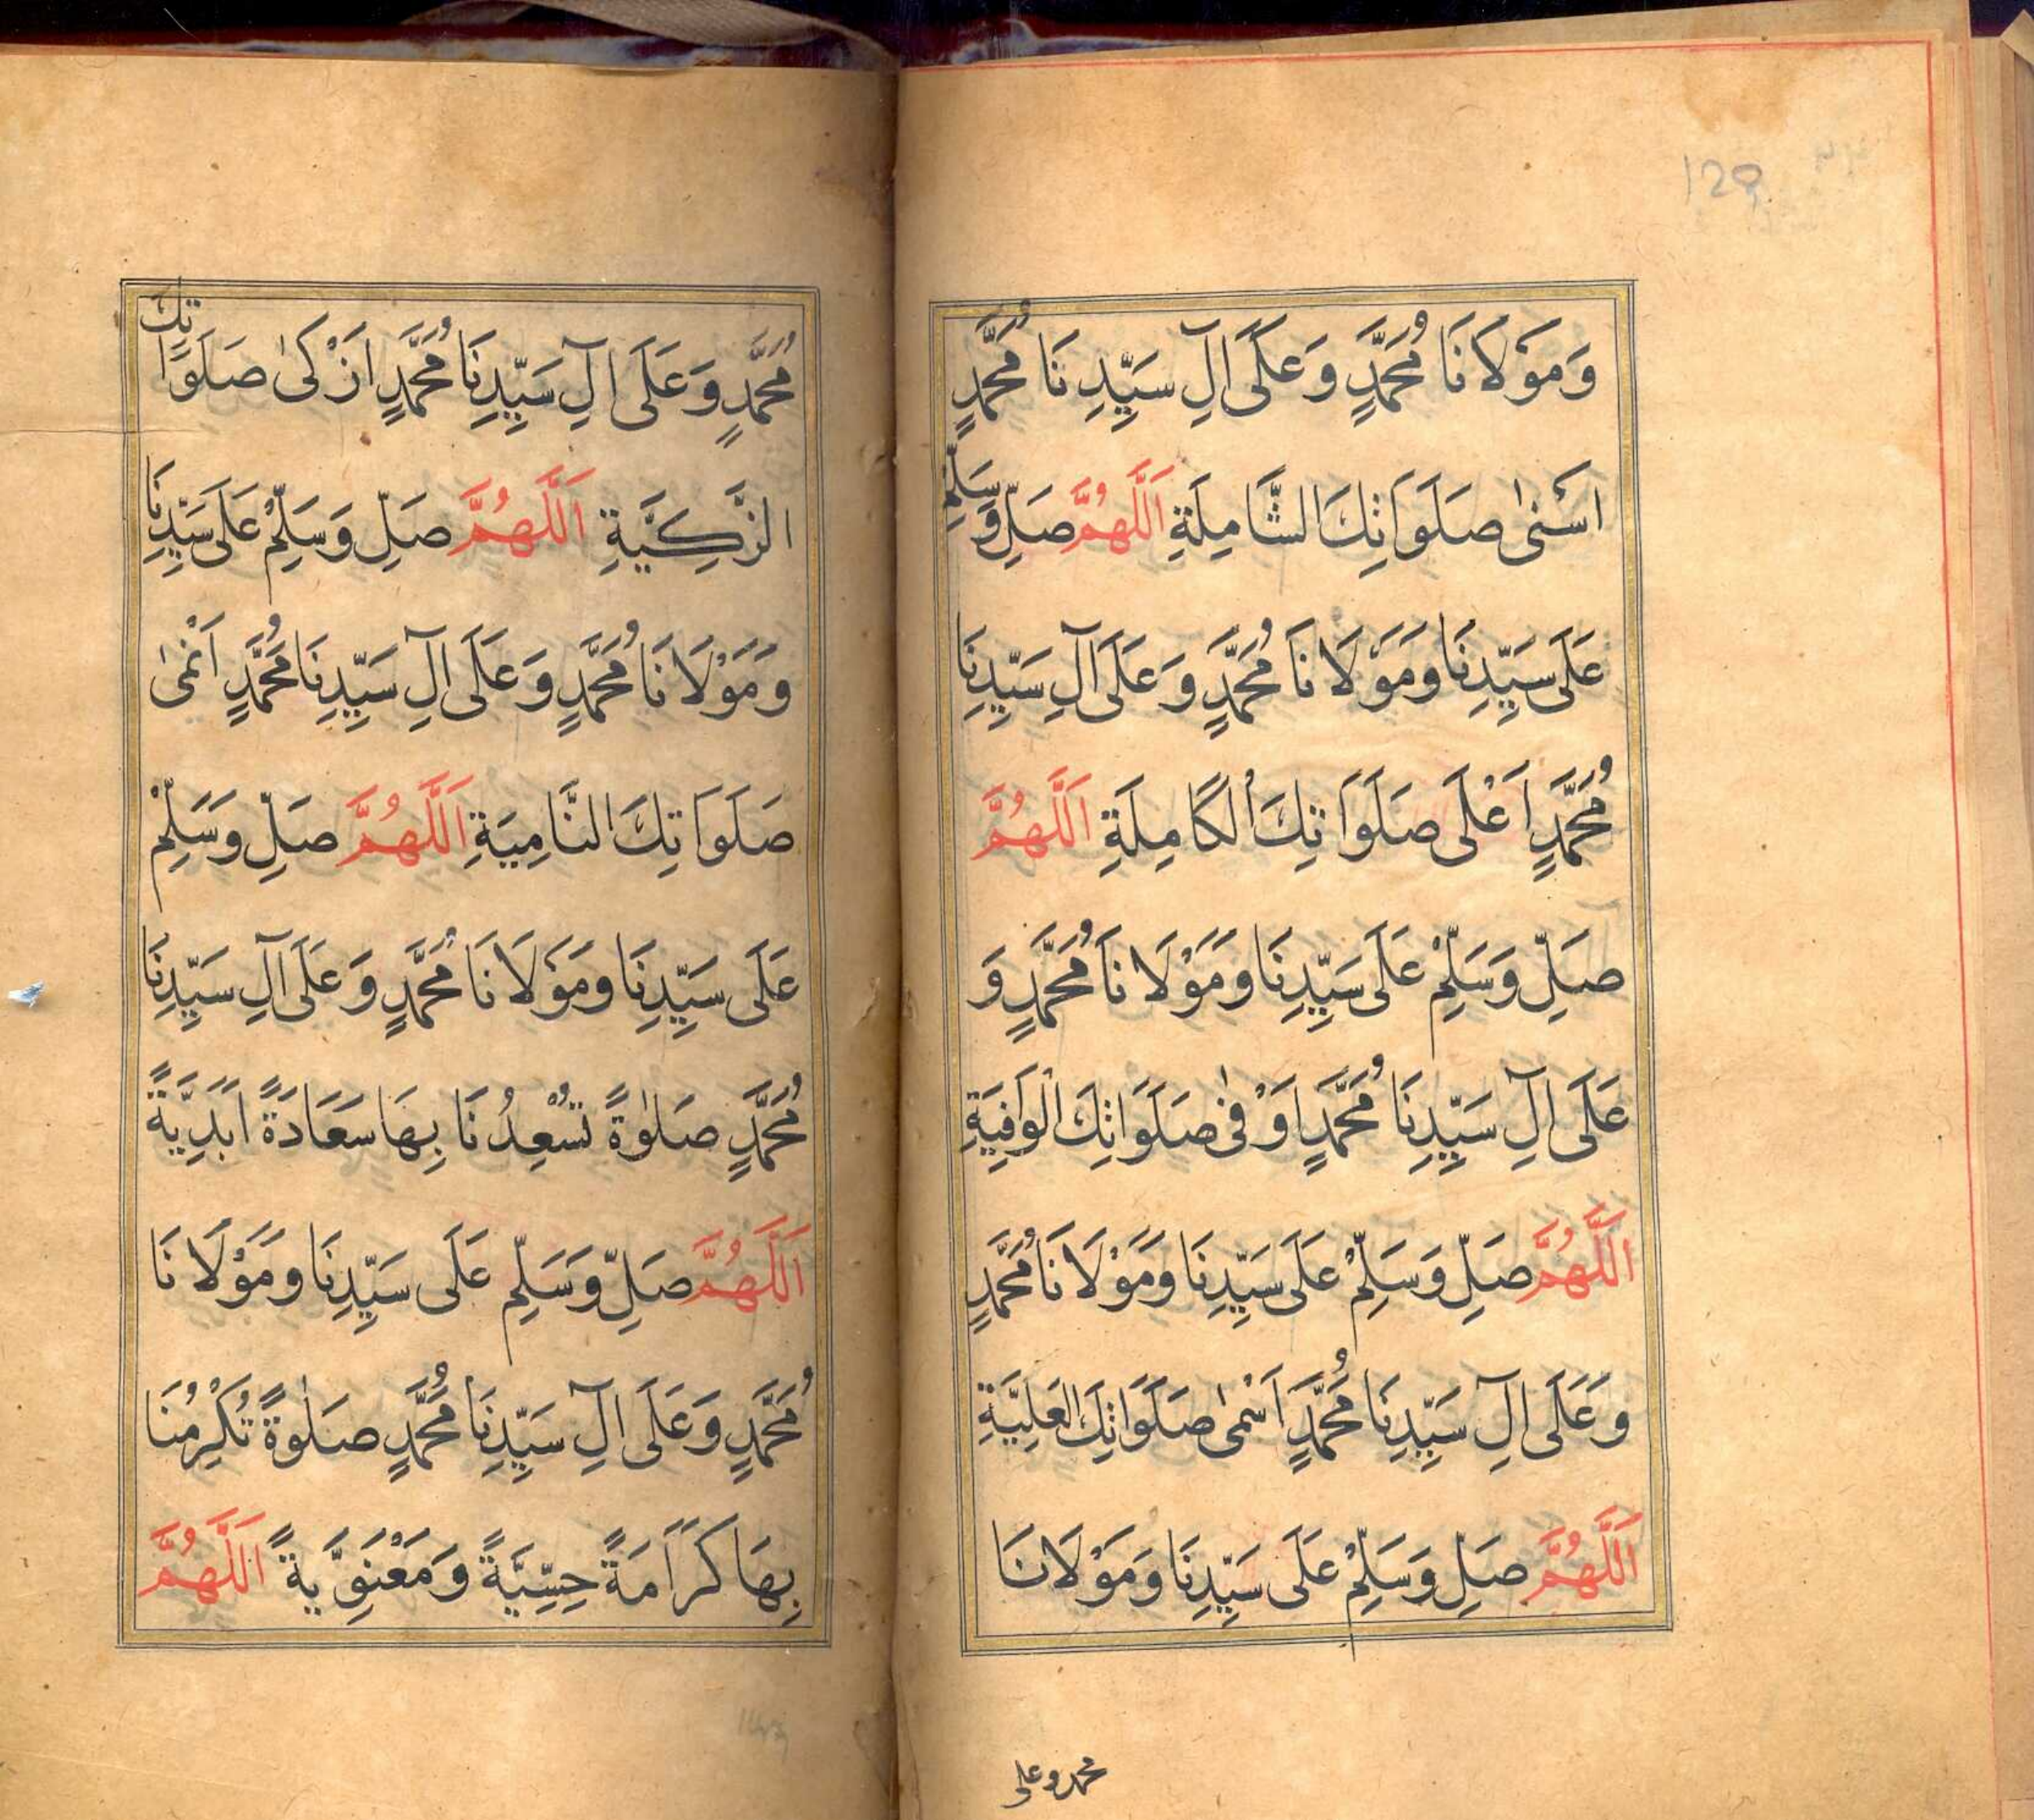 120
وَمَوْلَانَا مُحَمَّدٍ وَعَلَى آلِ سَيِّدِنَا مُحَمَّدٍ
اَسْنٰى صَلَوَاتِكَ الشَّامِلَةِ اَللّٰهُمَّ صَلِّ وَسَلِّمْ
عَلَى سَيِّدِنَا وَمَوْلَانَا مُحَمَّدٍ وَعَلَى آلِ سَيِّدِنَا
مُحَمَّدٍ اَعْلَى صَلَوَاتِكَ الْكَامِلَةِ اَللّٰهُمَّ
صَلِّ وَسَلِّمْ عَلَى سَيِّدِنَا وَمَوْلَانَا مُحَمَّدٍ وَ
عَلَى آلِ سَيِّدِنَا مُحَمَّدٍ اَوْفٰى صَلَوَاتِكَ الْوَافِيَةِ
اَللّٰهُمَّ صَلِّ وَسَلِّمْ عَلَى سَيِّدِنَا وَمَوْلَانَا مُحَمَّدٍ
وَعَلَى آلِ سَيِّدِنَا مُحَمَّدٍ اَسْمٰى صَلَوَاتِكَ الْعَلِيَّةِ
اَللّٰهُمَّ صَلِّ وَسَلِّمْ عَلَى سَيِّدِنَا وَمَوْلَانَا
محمد وعلى
مُحَمَّدٍ وَعَلَى آلِ سَيِّدِنَا مُحَمَّدٍ اَزْكٰى صَلَوَاتِكَ
الزَّكِيَّةِ اَللّٰهُمَّ صَلِّ وَسَلِّمْ عَلَى سَيِّدِنَا
وَمَوْلَانَا مُحَمَّدٍ وَعَلَى آلِ سَيِّدِنَا مُحَمَّدٍ اَنْمٰى
صَلَوَاتِكَ النَّامِيَةِ اَللّٰهُمَّ صَلِّ وَسَلِّمْ
عَلَى سَيِّدِنَا وَمَوْلَانَا مُحَمَّدٍ وَعَلَى آلِ سَيِّدِنَا
مُحَمَّدٍ صَلٰوةً تُسْعِدُنَا بِهَا سَعَادَةً اَبَدِيَّةً
اَللّٰهُمَّ صَلِّ وَسَلِّمْ عَلَى سَيِّدِنَا وَمَوْلَانَا
مُحَمَّدٍ وَعَلَى آلِ سَيِّدِنَا مُحَمَّدٍ صَلٰوةً تُكْرِمُنَا
بِهَا كَرَامَةً حِسِّيَّةً وَمَعْنَوِيَّةً اَللّٰهُمَّ